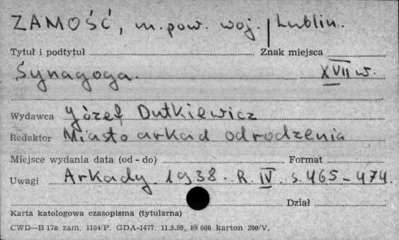 ZAMOŚĆ, m. pow. woj. Lublin.
Tytuł i podtytuł Znak miejsca
Synagoga. XVII w.
Wydawca Józef Dutkiewicz
Redaktor Miasto arkad odrodzenia
Miejsce wydania data (od - do) Format
Uwagi Arkady 1938. R. IV s. 465-474.
Dział
Karta katologowa czasopisma (tytularna)
CWD—B 17a zam. 1104/P. GDA-1477. 11.5.59. 89 000 karton 200/V.